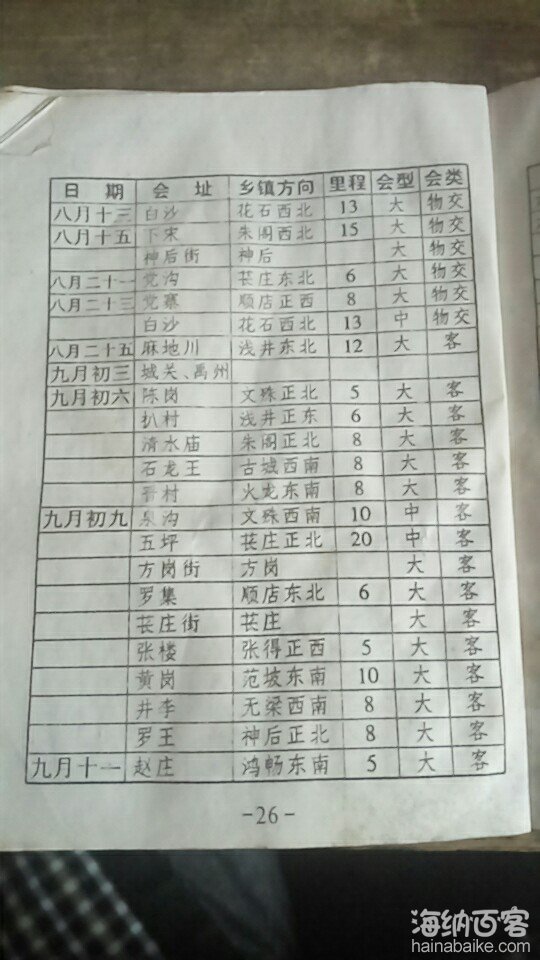 日 期 会 址 乡镇方向 里程 会型 会类
八月十三 白沙 花石西北 13 大 物交
八月十五 下宋 朱阁西北 15 大 物交
神后街 神后 大 物交
八月二十一 党沟 苌庄东北 6 大 物交
八月二十三 党寨 顺店正西 8 大 物交
白沙 花石西北 13 中 物交
八月二十五 麻地川 浅井东北 12 大 客
九月初三 城关、禹州
九月初六 陈岗 文殊正北 5 大 客
扒村 浅井正东 6 大 客
清水庙 朱阁正北 8 大 客
石龙王 古城西南 8 大 客
晋村 火龙东南 8 大 客
九月初九 泉沟 文殊西南 10 中 客
五坪 苌庄正北 20 中 客
方岗街 方岗 大 客
罗集 顺店东北 6 大 客
苌庄街 苌庄 大 客
张楼 张得正西 5 大 客
黄岗 范坡东南 10 大 客
井李 无梁西南 8 大 客
罗王 神后正北 8 大 客
九月十一 赵庄 鸿畅东南 5 大 客
-26-
海纳百客
hainabaike.com